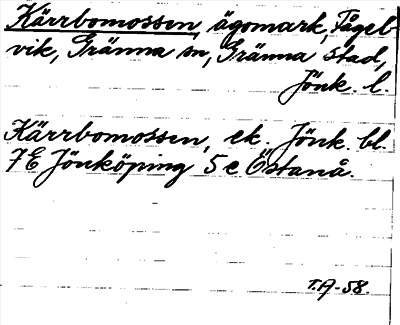 Kärrbomossen, ägomark, Fågel-
vik, Gränna sn, Gränna stad,
Jönk. l.
Kärrbomossen, ek. Jönk. bl.
7E Jönköping 5 e Östanå.
T.A-58.